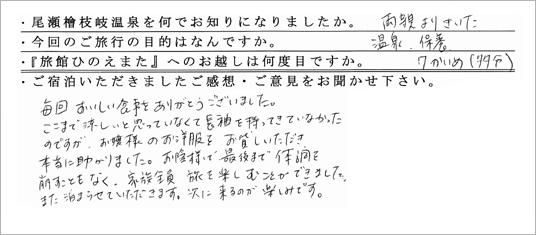 ・尾瀬檜枝岐温泉を何でお知りになりましたか。 両親よりきいた
・今回のご旅行の目的はなんですか。 温泉、保養
・『旅館ひのえまた』へのお越しは何度目ですか。 7かいめ(多分)
・ご宿泊いただきましたご感想・ご意見をお聞かせ下さい。
毎回おいしい食事をありがとうございました。
ここまで涼しいと思っていなくて長袖を持ってきていなかった
のですが、お嬢様のお洋服をお貸しいただき
本当に助かりました。お陰様で最後まで体調を
崩すこともなく、家族全員旅を楽しむことができました。
また泊まらせていただきます。次に来るのが楽しみです。